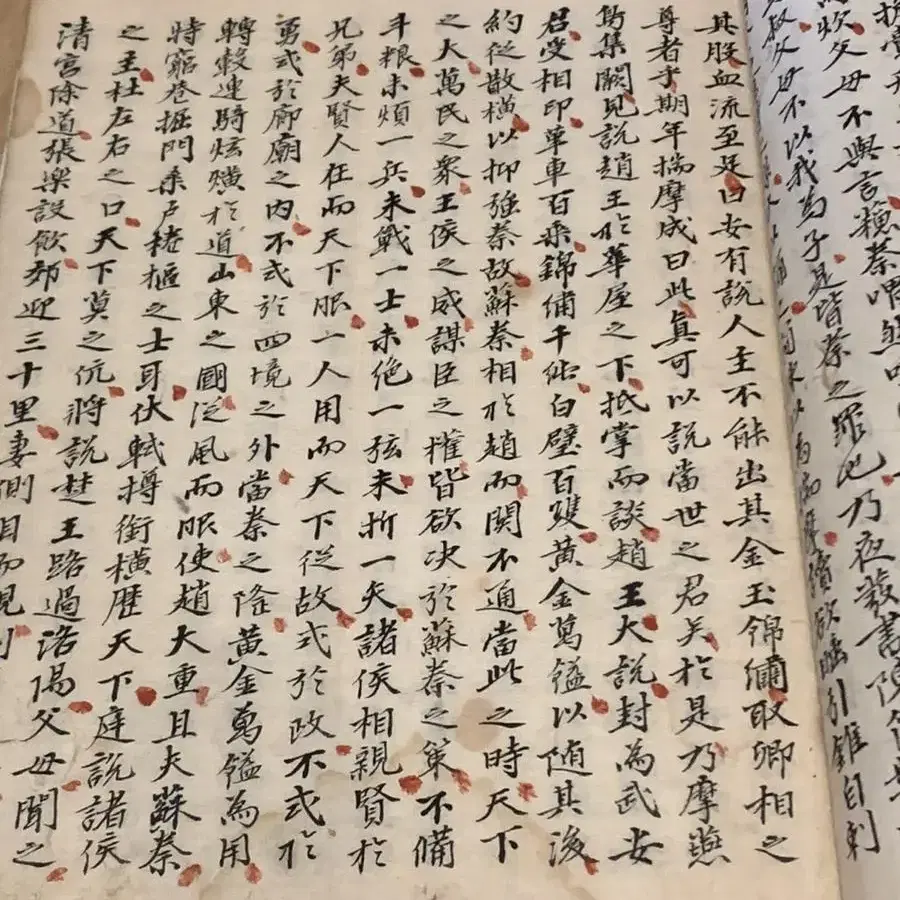 父母不與言蘓秦喟然
叔父母不以我為子是皆秦之罪也乃夜發書陳
以為揣摩讀書欲睡引錐自刺
其股血流至足曰安有說人主不能出其金玉錦繡取卿相之
尊者乎期年揣摩成曰此真可以說當世之君矣於是乃摩燕
烏集闕見說趙王於華屋之下抵掌而談趙王大說封為武安
君受相印革車百乘錦繡千純白璧百雙黃金萬鎰以随其後
約從散橫以抑強秦故蘇秦相於趙而関不通當此之時天下
之大萬民之衆王侯之威謀臣之權皆欲决於蘇秦之策不備
斗粮未煩一兵未戰一士未絕一弦未折一矢諸侯相親賢於
兄弟夫賢人在而天下服一人用而天下從故式於政不式於
勇式於廊廟之内不式於四境之外當秦之隆黃金萬鎰為用
轉轂連騎炫熿於道山東之國從風而服使趙大重且夫蘇秦
特窮巷掘門桑户棬樞之士耳伏軾撙銜橫歷天下庭說諸侯
之主杜左右之口天下莫之伉將說楚王路過洛陽父母聞之
清宮除道張樂設飲郊迎三十里妻側目而視